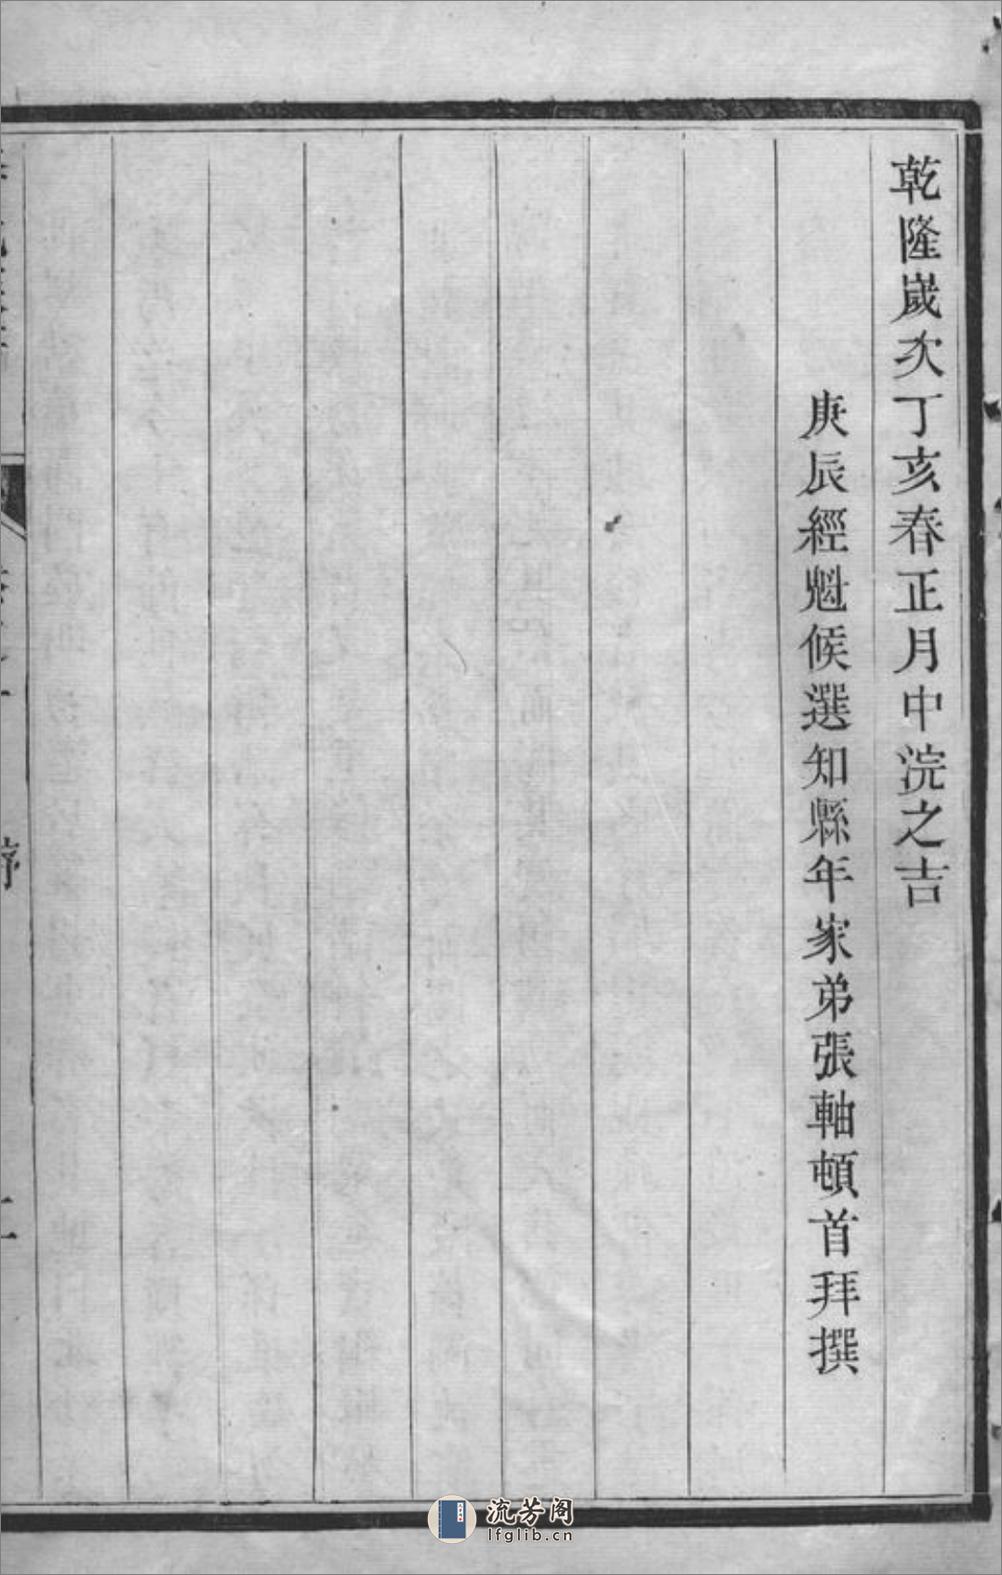 乾隆嵗次丁亥春正月中浣之吉
庚辰經魁候選知縣年家弟張軸頓首拜撰
序
流芳阁
lfglib.cn